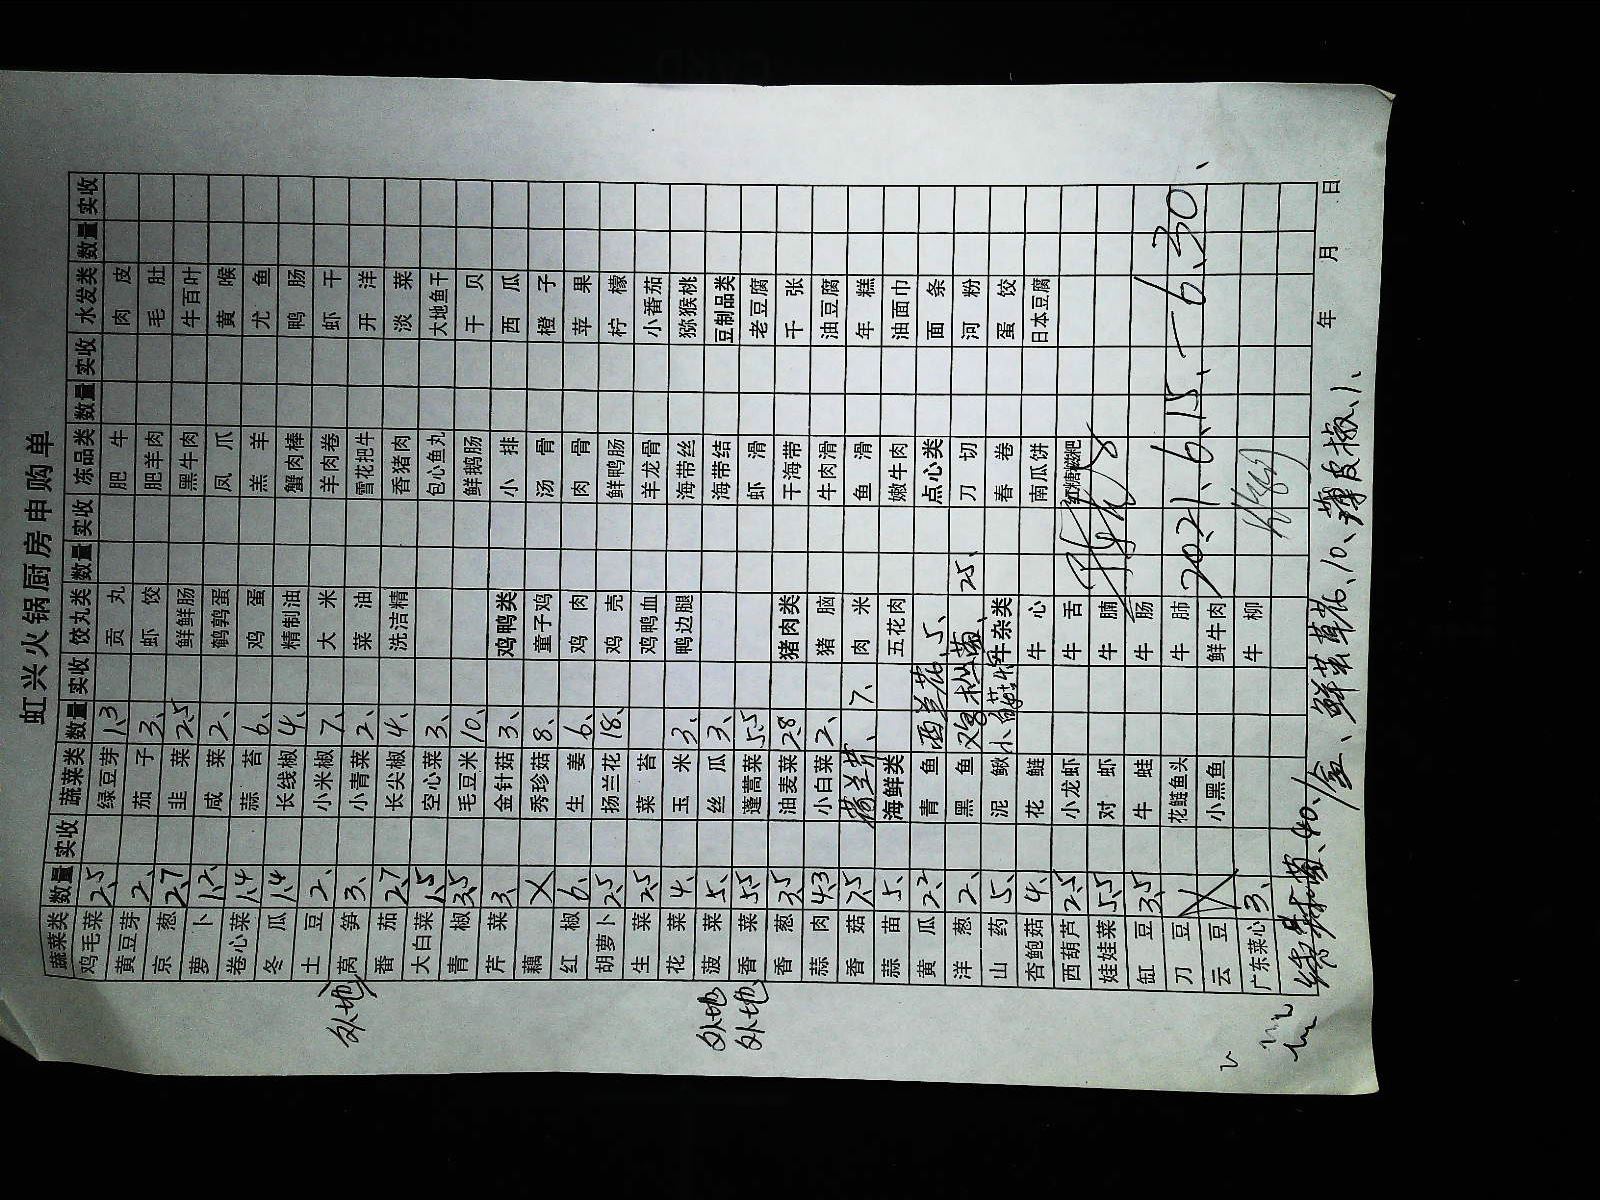 虹兴火锅厨房申购单
蔬菜类 数量 实收 蔬菜类 数量 实收 饺丸类 数量 实收 冻品类 数量 实收 水发类 数量 实收
鸡毛菜 2.5 绿豆芽 1.3 贡丸 肥牛 肉皮
黄豆芽 2、 茄子 3、 虾饺 肥羊肉 毛肚
京葱 2.7 韭菜 2.5 鲜鲜肠 黑牛肉 牛百叶
萝卜 1.2、 咸菜 2、 鹌鹑蛋 凤爪 黄喉
卷心菜 1.4 蒜苔 6、 鸡蛋 羔羊 尤鱼
冬瓜 1.4 长线椒 4、 精制油 蟹肉棒 鸭肠
土豆 2、 小米椒 7、 大米 羊肉卷 虾干
外地 莴笋 3、 小青菜 2、 菜油 雪花把牛 开洋
番茄 2.7 长尖椒 4、 洗洁精 香猪肉 淡菜
大白菜 1.5 空心菜 3、 包心鱼丸 大地鱼干
青椒 3.5 毛豆米 10、 鲜鹅肠 干贝
芹菜 3、 金针菇 3、 鸡鸭类 小排 西瓜
藕 X 秀珍菇 8、 童子鸡 汤骨 橙子
红椒 6、 生姜 6、 鸡肉 肉骨 苹果
胡萝卜 2.5 扬兰花 18、 鸡壳 鲜鸭肠 柠檬
生菜 2.5 菜苔 鸡鸭血 羊龙骨 小番茄
花菜 4、 玉米 3、 鸭边腿 海带丝 猕猴桃
外地 菠菜 5、 丝瓜 3、 海带结 豆制品类
外地 香菜 5.5 蓬蒿菜 5.5 虾滑 老豆腐
香葱 3.5 油麦菜 2.8 猪肉类 干海带 千张
蒜肉 4.3 小白菜 2、 猪脑 牛肉滑 油豆腐
香菇 7.5 7、 肉米 鱼滑 年糕
蒜苗 5、 海鲜类 五花肉 嫩牛肉 油面巾
黄瓜 2.2 青鱼 西兰花、5、 点心类 面条
洋葱 2、 黑鱼 25、 刀切 河粉
山药 5、 泥鳅 牛杂类 春卷 蛋饺
杏鲍菇 4、 花鲢 牛心 南瓜饼 日本豆腐
西葫芦 2.5 小龙虾 牛舌 红糖糍粑
娃娃菜 5.5 对虾 牛腩
缸豆 3.5 牛蛙 牛肠
刀豆 花鲢鱼头 牛肺 2021、6、15、—6、30、
云豆 X 小黑鱼 鲜牛肉
广东菜心 3、 牛柳
40、/盒、鲜草菇、10、薄皮椒、1、
年 月 日